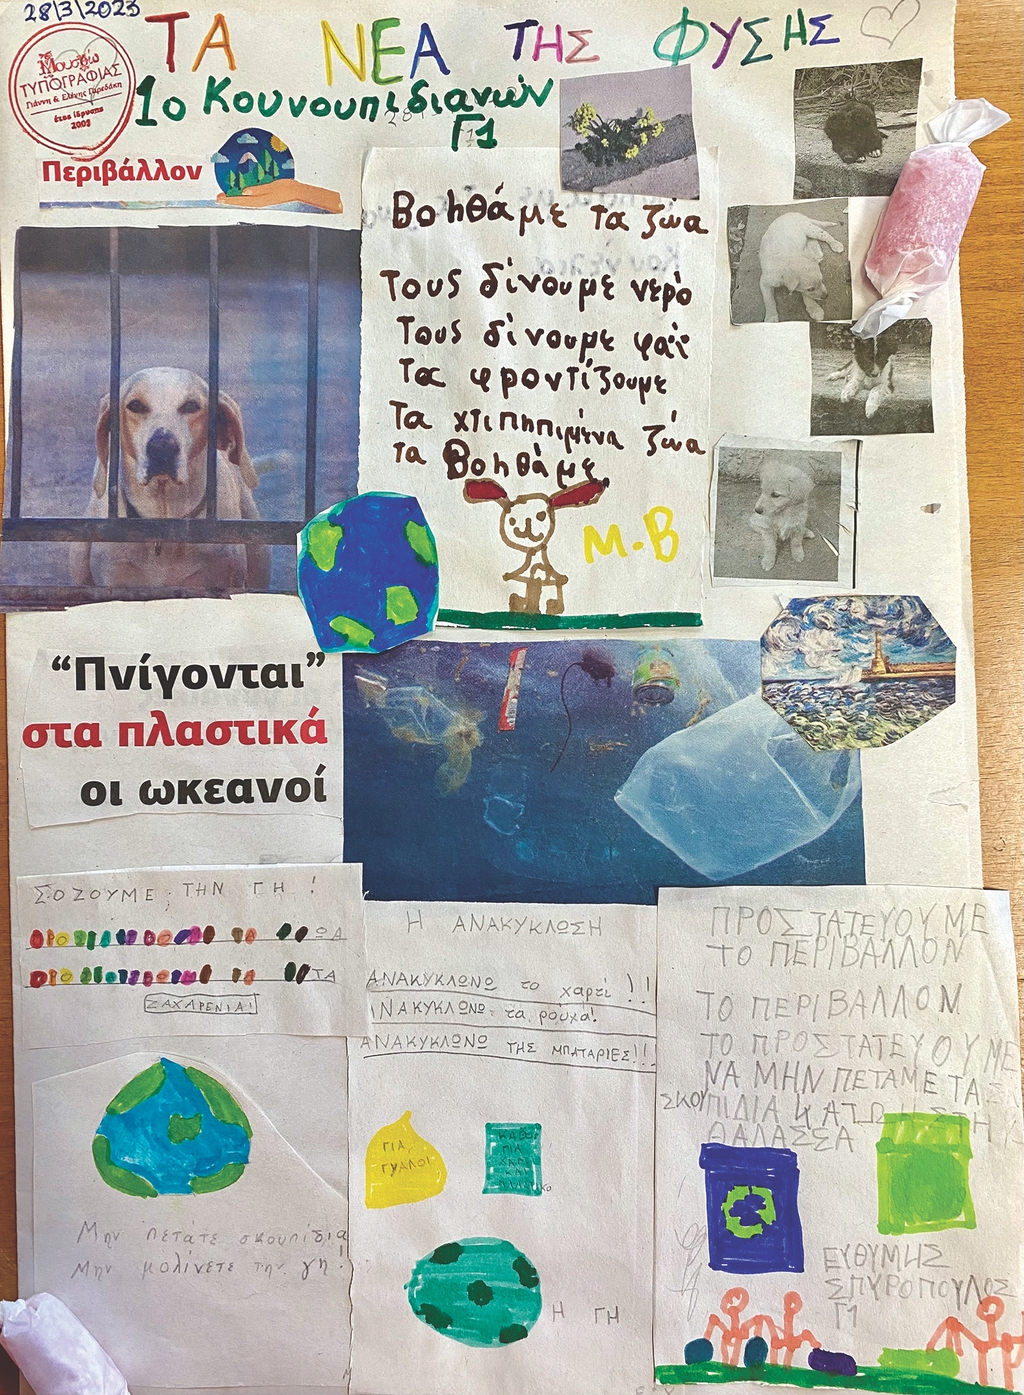 28/3/2023
ΤΑ ΝΕΑ ΤΗΣ ΦΥΣΗΣ
Μουσείο
ΤΥΠΟΓΡΑΦΙΑΣ
Γιάννη & Ελένης Γαρεδάκη
έτος ίδρυσης
2005
1ο Κουνουπιδιανών
Γ1
Περιβάλλον
Βοηθάμε τα ζώα
Τους δίνουμε νερό
Τους δίνουμε φαϊ
Τα φροντίζουμε
Τα χτιπηπιμένα ζώα
τα Βοηθάμε
Μ.Β
“Πνίγονται”
στα πλαστικά
οι ωκεανοί
ΣΟΖΟΥΜΕ ΤΗΝ ΓΗ!
ΖΑΧΑΡΕΝΙΑ!
Μην πετάτε σκουπίδια
Μην μολίνετε την γη!
Η ΑΝΑΚΥΚΛΩΣΗ
ΑΝΑΚΥΚΛΩΝΩ το χαρτί!!
ΑΝΑΚΥΚΛΩΝΩ τα ρούχα!
ΑΝΑΚΥΚΛΩΝΩ ΤΗΣ ΜΠΑΤΑΡΙΕΣ!!!
ΓΙΑ
ΓΥΑΛΟΙ
Η ΓΗ
ΠΡΟΣΤΑΤΕΥΟΥΜΕ
ΤΟ ΠΕΡΙΒΑΛΛΟΝ
ΤΟ ΠΕΡΙΒΑΛΛΟΝ
ΤΟ ΠΡΟΣΤΑΤΕΥΟΥΜΕ
ΝΑ ΜΗΝ ΠΕΤΑΜΕ ΤΑ
ΣΚΟΥΠΙΔΙΑ ΚΑΤΩ Η ΣΤΗ
ΘΑΛΑΣΣΑ
ΕΥΘΥΜΗΣ
ΣΠΥΡΟΠΟΥΛΟΣ
Γ1